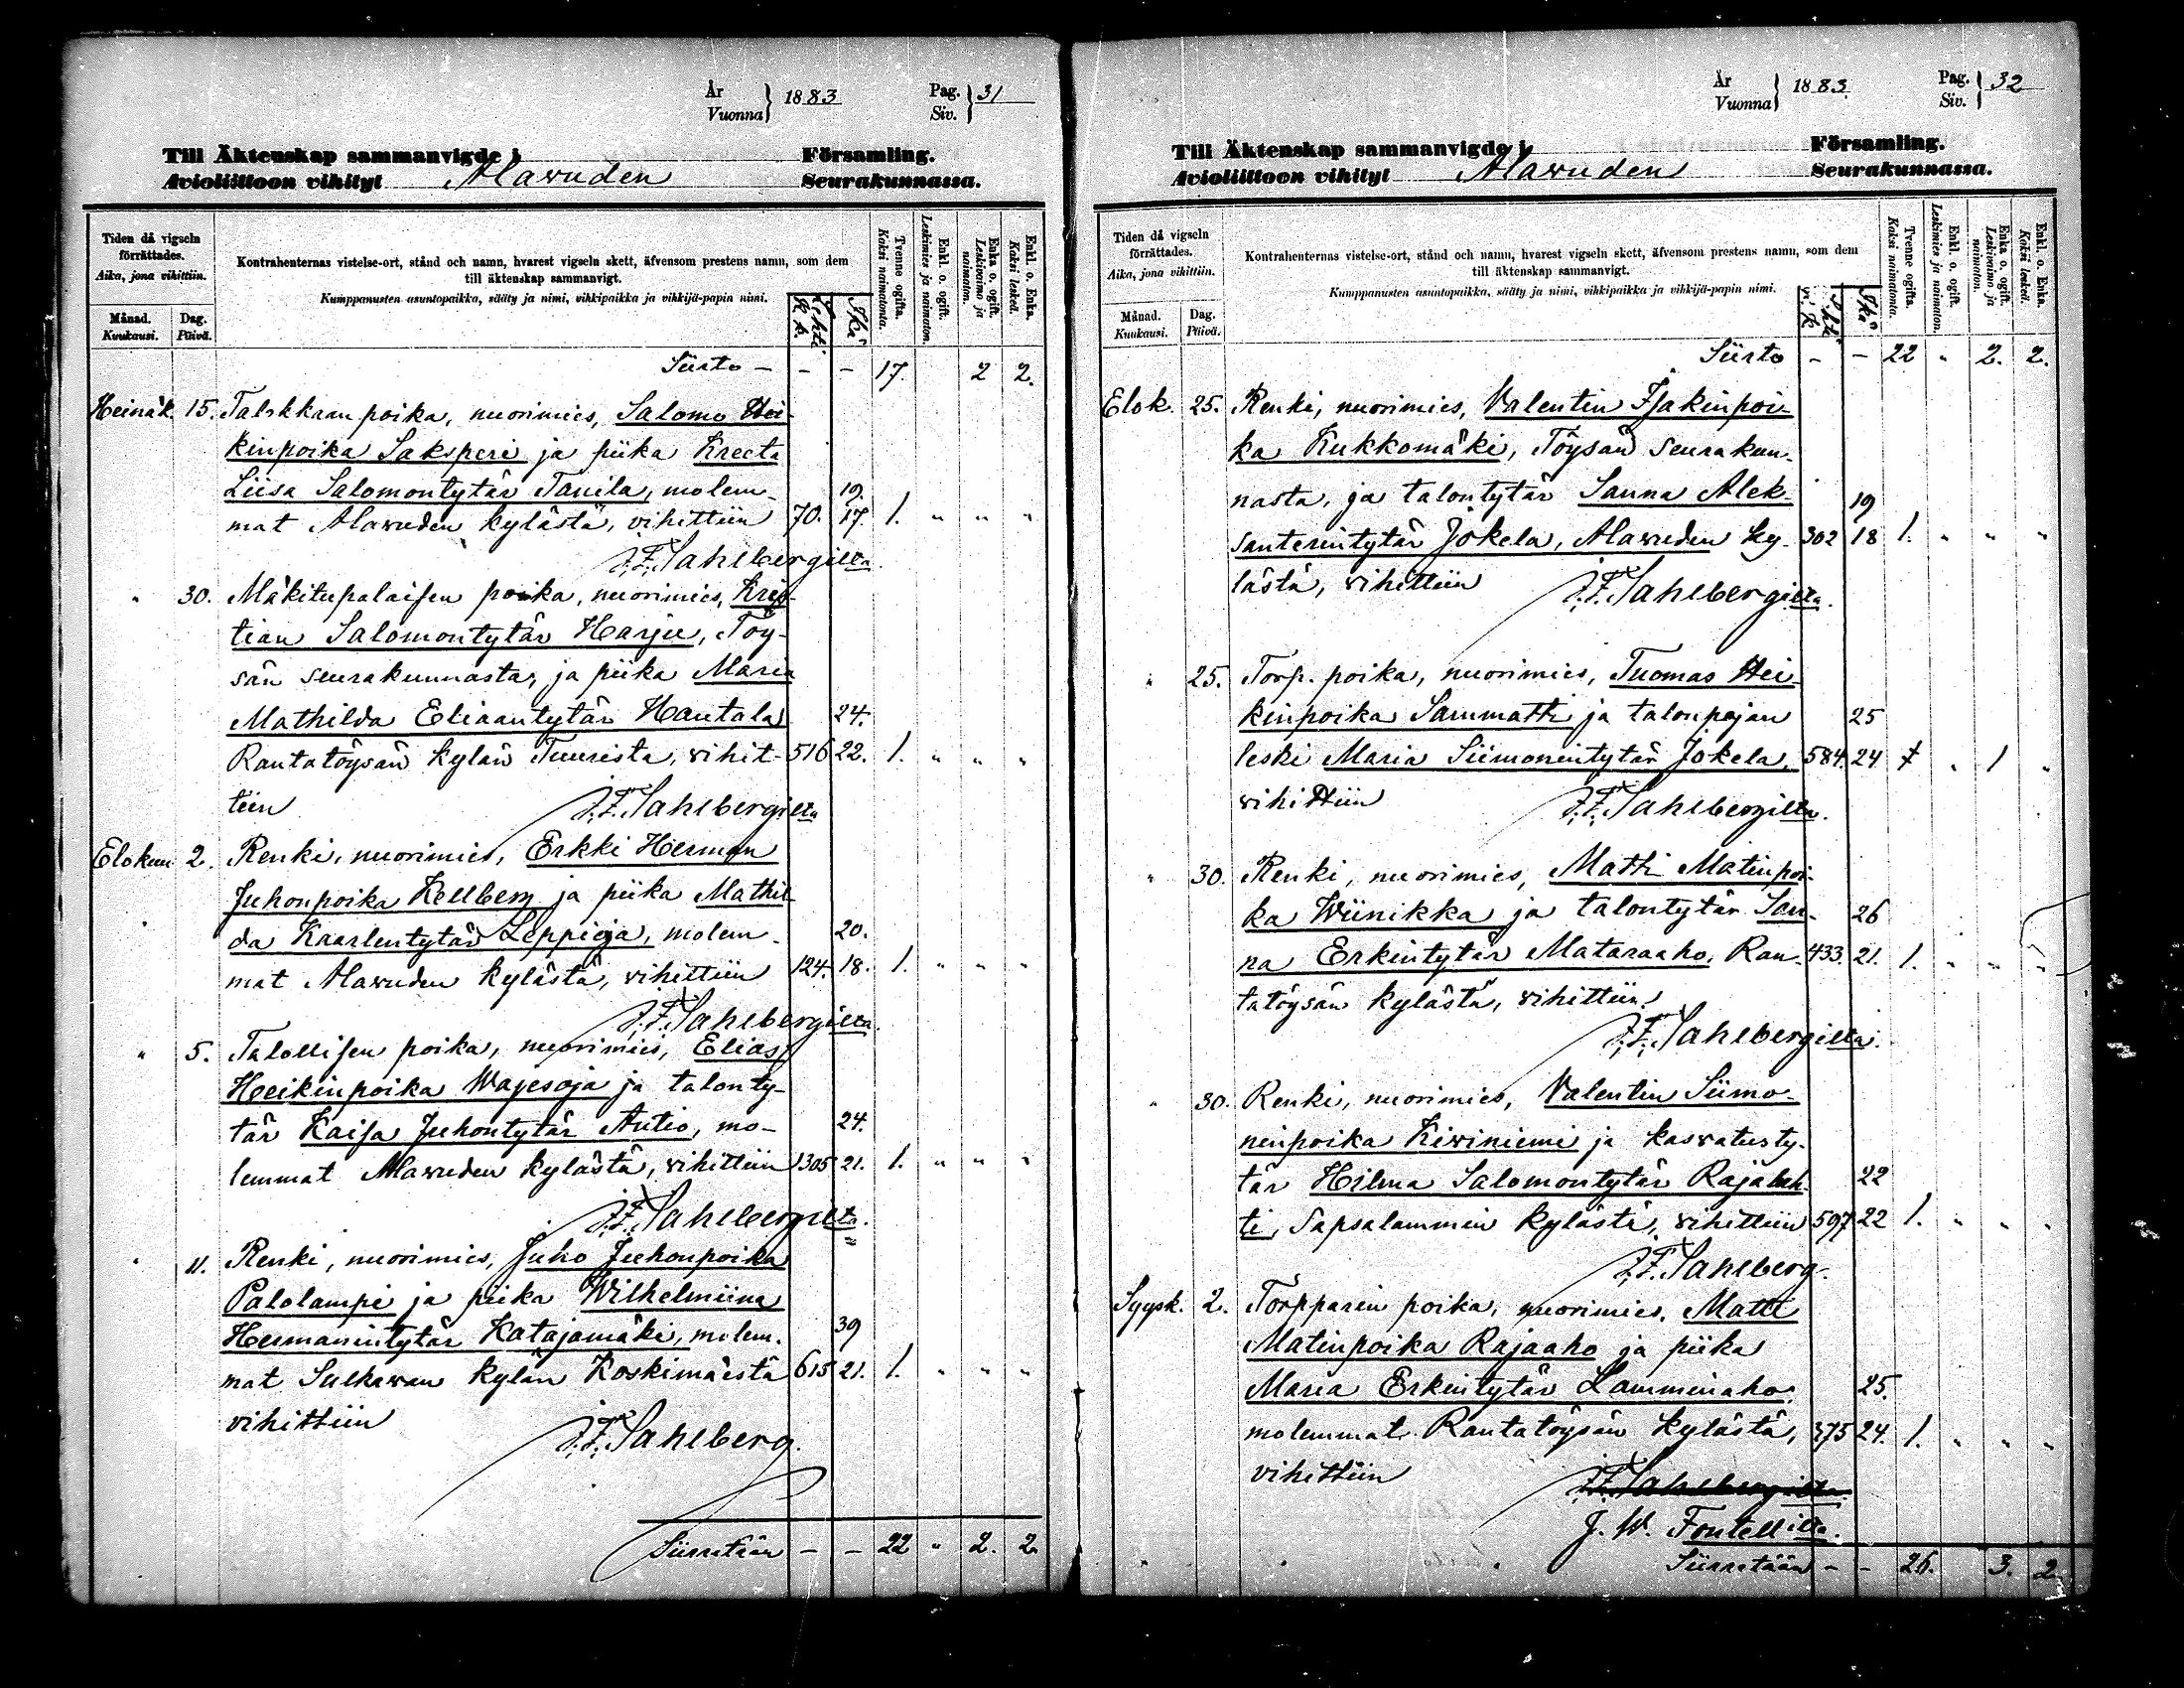 År
Vuonna } 1883 Pag.
Siv. } 31
Till Äktenskap sammanvigde i Församling.
Avioliittoon vihityt Alavuden Seurakunnassa.
Tiden då vigseln förrättades.
Aika, jona vihittiin.
Månad. Dag.
Kuukausi. Päivä.
Kontrahenternas vistelse-ort, stånd och namn, hvarest vigseln skett, äfvensom prestens namn, som dem
till äktenskap sammanvigt.
Kumppanusten asuntopaikka, sääty ja nimi, vihkipaikka ja vihkijä-papin nimi.
Lehti K. k. Ikä
Tvenne ogifta. Kaksi naimatonta.
Enkl. o. ogift. Leskimies ja naimaton.
Enka o. ogift. Leskivaimo ja naimaton.
Enkl. o. Enka. Kaksi leskeä.
Siirto - - - 17. 2 2.
Heinäk. 15. poika, nuorimies, Salomo Hei-
kinpoika Saksperi ja piika Kreeta
Liisa Salomontytär Tanila, molem- 19.
mat Alavuden kylästä, vihittiin 70. 17. 1. " " "
J. F. Sahlbergilta
" 30. Mäkitupalaisen poika, nuorimies, Kris-
tian Salomontytär Harju, Töy-
sän seurakunnasta, ja piika Maria
Mathilda Eliaantytär Hautala 24.
Rantatöysän kylän Tuurista, vihit- 516 22. 1. " " "
tiin J. F. Sahlbergilta
Elokuu 2. Renki, nuorimies, Erkki Herman
Juhonpoika Kellberg ja piika Mathil-
da Kaarlentytär Leppioja, molem- 20.
mat Alavuden kylästä, vihittiin 124. 18. 1. " " "
J. F. Sahlbergilta
" 5. Talollisen poika, nuorimies, Elias
Heikinpoika Wajesoja ja talonty-
tär Kaisa Juhontytär Autio, mo- 24.
lemmat Alavuden kylästä, vihittiin 1305 21. 1. " " "
J. F. Sahlbergilta.
" 11. Renki, nuorimies, Juho Juhonpoika
Palolampi ja piika Wilhelmiina
Hermanintytär Katajamäki, molem- 39
mat Sulkavan kylän Koskimäestä 615 21. 1. " " "
vihittiin J. F. Sahlberg.
Siirretään - - 22 " 2. 2.
År
Vuonna } 1883 Pag.
Siv. } 32
Till Äktenskap sammanvigde i Församling.
Avioliittoon vihityt Alavuden Seurakunnassa.
Tiden då vigseln förrättades.
Aika, jona vihittiin.
Månad. Dag.
Kuukausi. Päivä.
Kontrahenternas vistelse-ort, stånd och namn, hvarest vigseln skett, äfvensom prestens namn, som dem
till äktenskap sammanvigt.
Kumppanusten asuntopaikka, sääty ja nimi, vihkipaikka ja vihkijä-papin nimi.
Ikä
Tvenne ogifta. Kaksi naimatonta.
Enkl. o. ogift. Leskimies ja naimaton.
Enka o. ogift. Leskivaimo ja naimaton.
Enkl. o. Enka. Kaksi leskeä.
Siirto - - 22 " 2. 2.
Elok. 25. Renki, nuorimies, Valentin Isakinpoi-
ka Kukkomäki, Töysän seurakun-
nasta, ja talontytär Sanna Alek- 19
santerintytär Jokela, Alavuden ky- 302 18 1. " " "
lästä, vihittiin J. F. Sahlbergilta.
" 25. Torp. poika, nuorimies, Tuomas Hei-
kinpoika Sammatti ja talonpojan 25
leski Maria Siimonintytär Jokela, 584. 24 " 1 "
vihittiin J. F. Sahlbergilta.
" 30. Renki, nuorimies, Matti Matinpoi-
ka Wiinikka ja talontytär San- 26
na Erkintytär Mataraaho, Ran- 433. 21. 1. " " "
tatöysän kylästä, vihittiin
J. F. Sahlbergilta.
" 30. Renki, nuorimies, Valentin Siimo-
ninpoika Kiviniemi ja kasvatusty-
tär Hilma Salomontytär Rajalah- 22
ti, Sapsalammin kylästä, vihittiin 597 22 1. " " "
J. F. Sahlberg.
Syysk. 2. Torpparin poika, nuorimies, Matti
Matinpoika Rajaaho ja piika
Maria Erkintytär Lamminaho, 25.
molemmat Rantatöysän kylästä, 375 24. 1. " " "
vihittiin J. F. Sahlbergilta
J. W. Fontellilta.
" " " Siirretään - - 26. 3. 2.